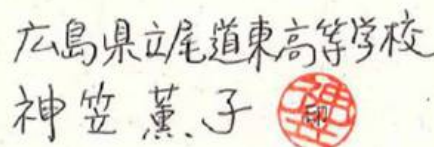 広島県立尾道東高等学校
神笠薫子 印